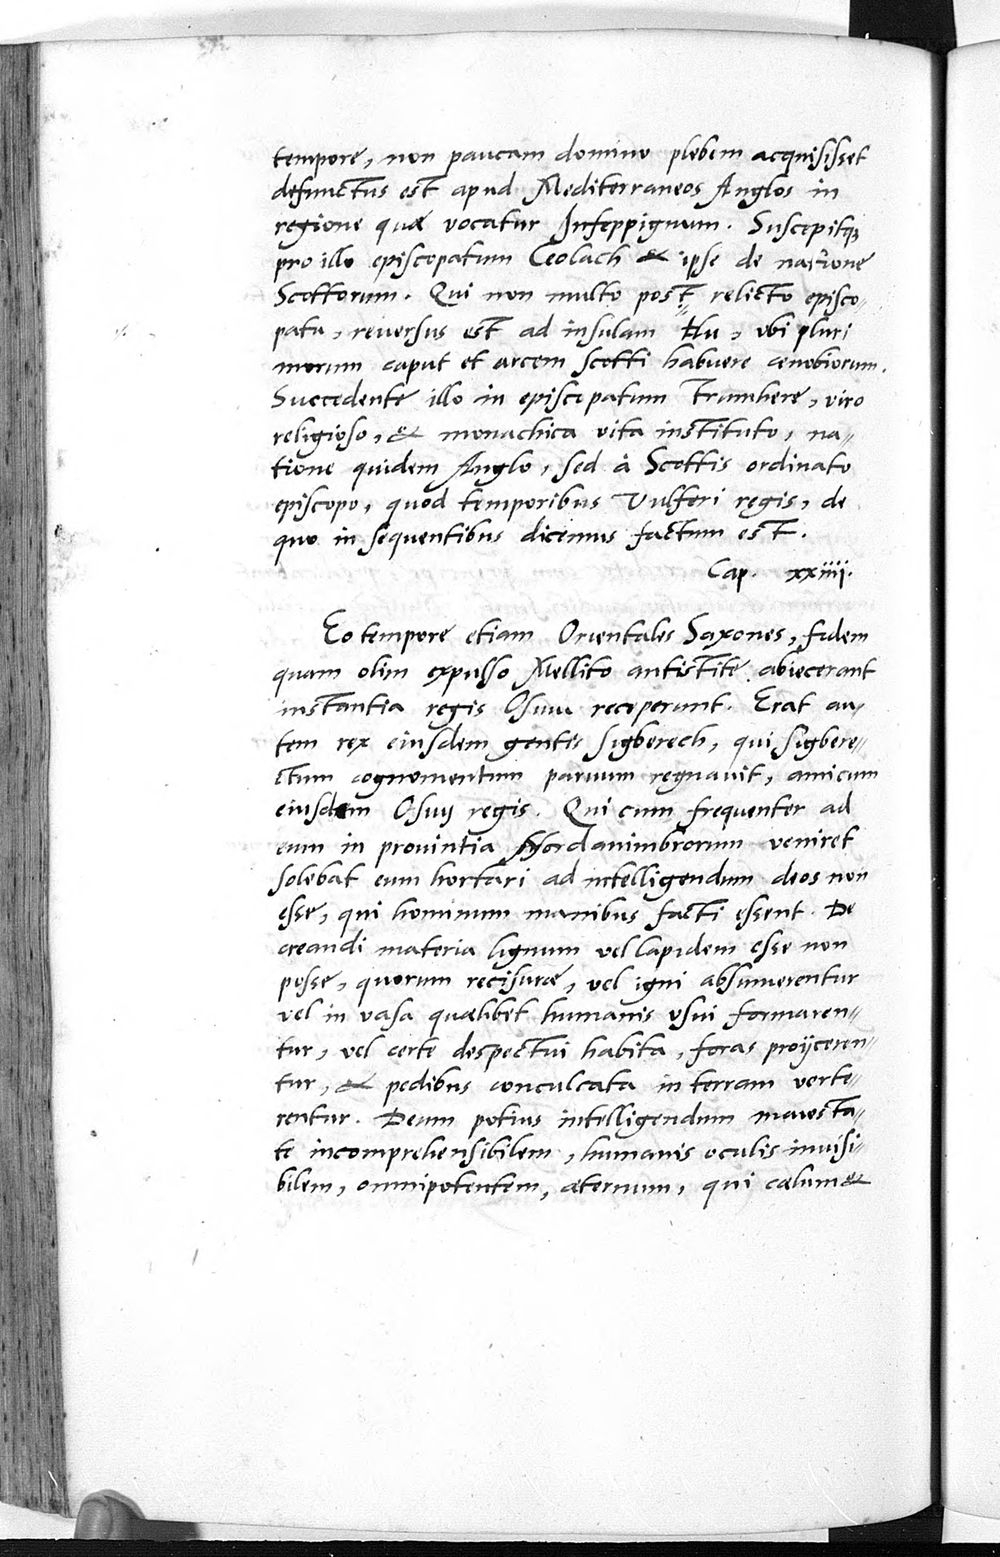 tempore, non paucam domino plebem acquisisset
defunctus est apud Mediterraneos Anglos in
regione quæ vocatur Infeppignum. Suscepitq;
pro illo episcopatum Ceolach & ipse de natione
Scottorum. Qui non multo post, relicto episco-
patu, reuersus est ad insulam Hu, vbi pluri
morum caput et arcem Scotti habuere cænobiorum.
Succedente illo in episcopatum Trumhere, viro
religioso, & monachica vita instituto, na-
tione quidem Anglo, sed à Scottis ordinato
episcopo, quod temporibus Vulferi regis, de
quo in sequentibus dicemus factum est.
Cap. xxiiij.
Eo tempore etiam Orientales Saxones, fidem
quam olim expulso Mellito antistite, abiecerant
instantia regis Osuiu receperunt. Erat au-
tem rex eiusdem gentis Sigberech, qui Sigbere-
ctum cognomentum paruum regnauit, amicum
eiusdem Osuij regis. Qui cum frequenter ad
eum in prouintia Nordanimbrorum veniret
solebat eum hortari ad intelligendum deos non
esse, qui hominum manibus facti essent. De
creandi materia lignum vel lapidem esse non
posse, quorum recisuræ, vel igni absumerentur
vel in vasa quælibet humanis vsui formaren-
tur, vel certe despectui habita, foras proijceren-
tur, & pedibus conculcata in terram verte-
rentur. Deum potius intelligendum maiesta-
te incomprehensibilem, humanis oculis inuisi-
bilem, omnipotentem, æternum, qui cælum &